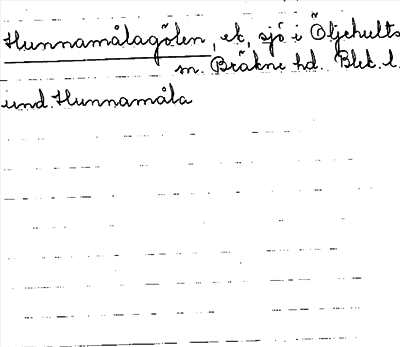 Hunnamålagölen, ek, sjö i Öljehults
sn. Bräkne hd. Blek. l.
und. Hunnamåla